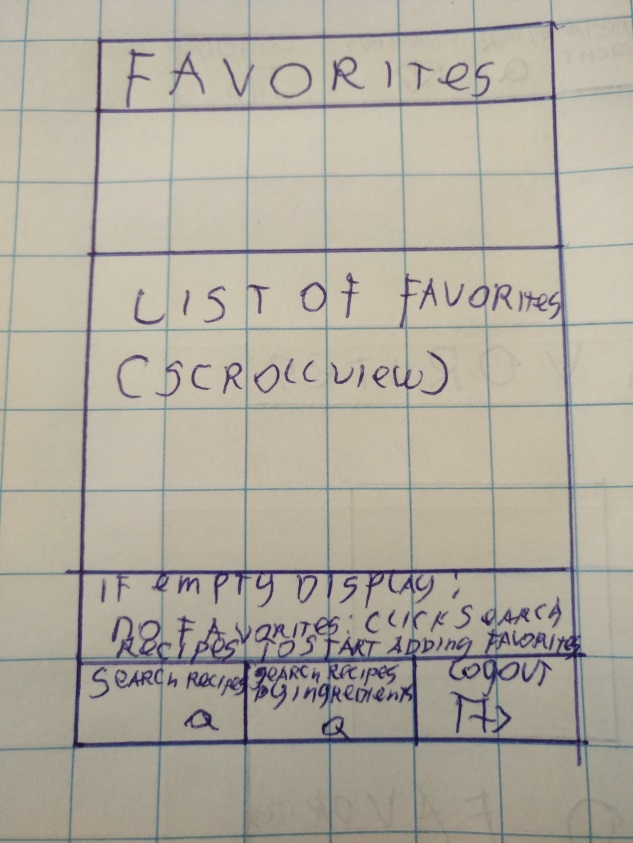 FAVORITes
LIST OF FAVORITes
(SCROLL VIEW)
IF empTY DISPLAY:
NO FAVORITES: CLICK SEARCH
RECIPES TO START ADDing FAVORITES
SEARCH RECIPES
SEARCH RECIPES
by ingredients
LOGOUT